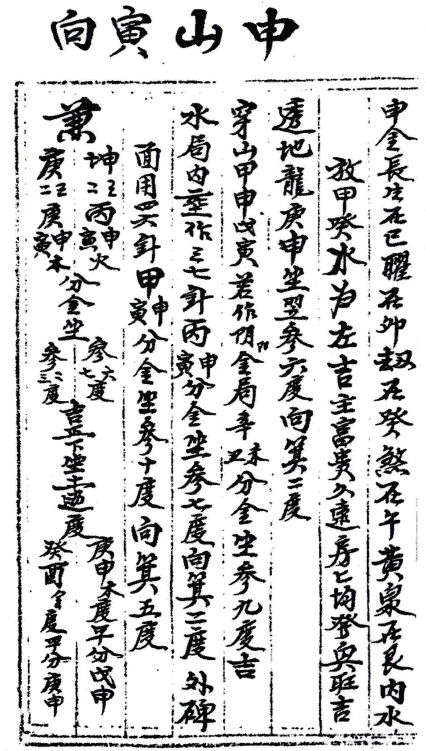 申山寅向
申金長生在巳曜在卯劫在癸煞在午黃泉在艮內水
放甲癸水為左吉主富貴久遠房亡均發與旺吉
透地龍庚申坐翌參六度向箕二度
穿山甲申戊寅若作陰金局辛未丑分金坐參九度吉
水局內坐作三七針丙申寅分金坐參七度向箕二度外碑
面用四六針甲申寅分金坐參十度向箕五度
兼
坤艮二丙申寅火
庚甲二庚申寅木
分金坐
參六七度
參二三度
吉丘下坐土透度
庚申木度平分戊申
癸酉金度平分庚申